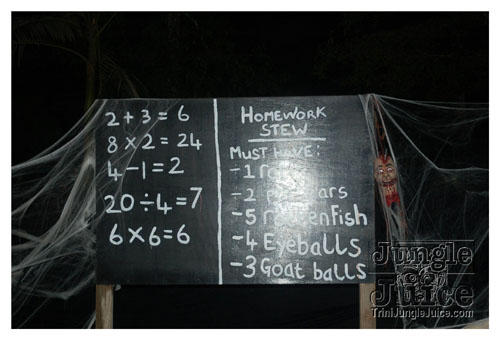 2 + 3 = 6
8 × 2 = 24
4 - 1 = 2
20 ÷ 4 = 7
6 × 6 = 6
HOMEWORK
STEW
MUST HAVE:
- 1
- 2
- 5 rottenfish
- 4 Eyeballs
- 3 Goat balls
Jungle
Juice
TriniJungleJuice.com